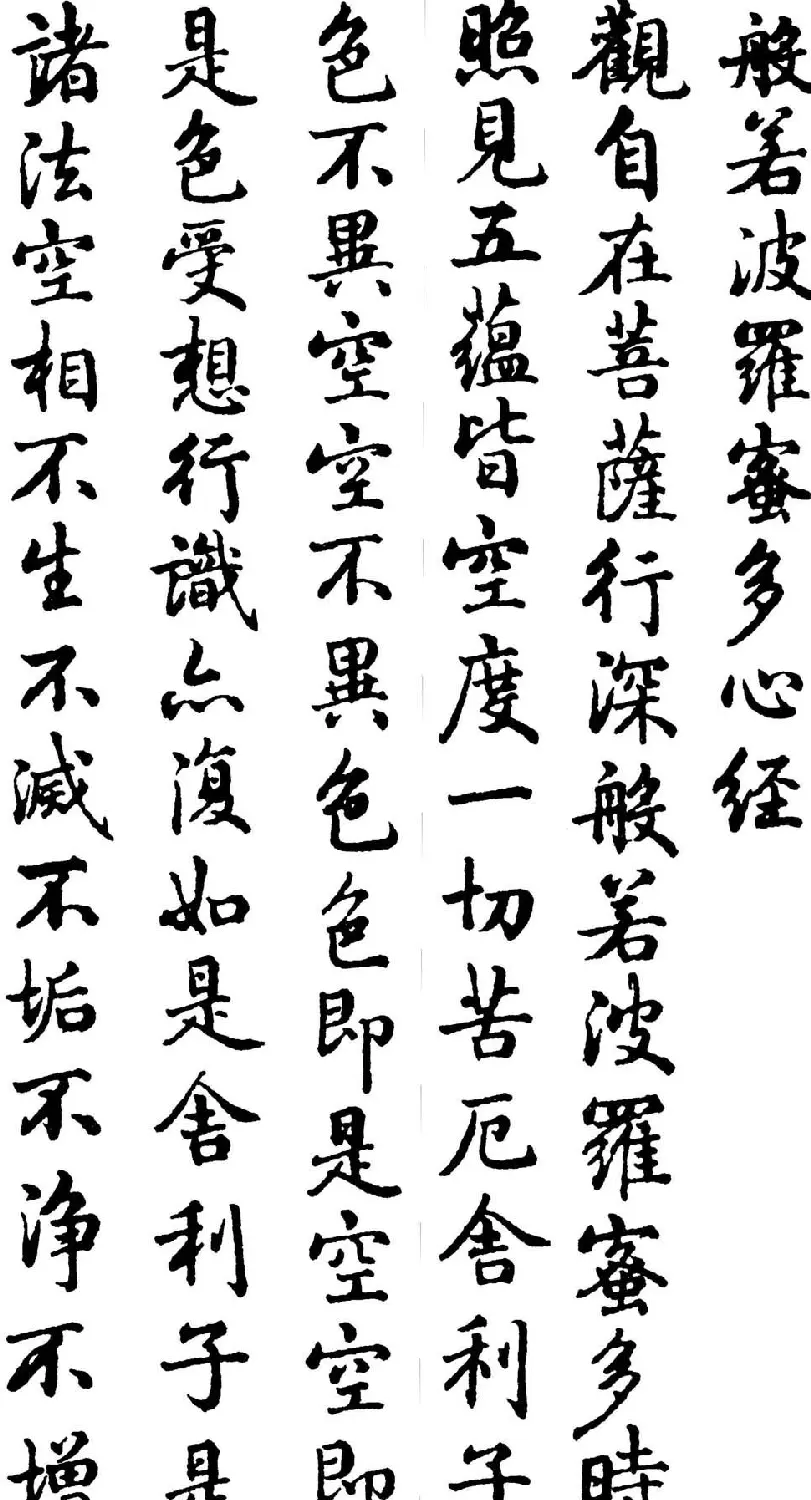 般若波羅蜜多心経
觀自在菩薩行深般若波羅蜜多時
照見五蘊皆空度一切苦厄舍利子
色不異空空不異色色即是空空即
是色受想行識亦復如是舍利子是
諸法空相不生不滅不垢不淨不增